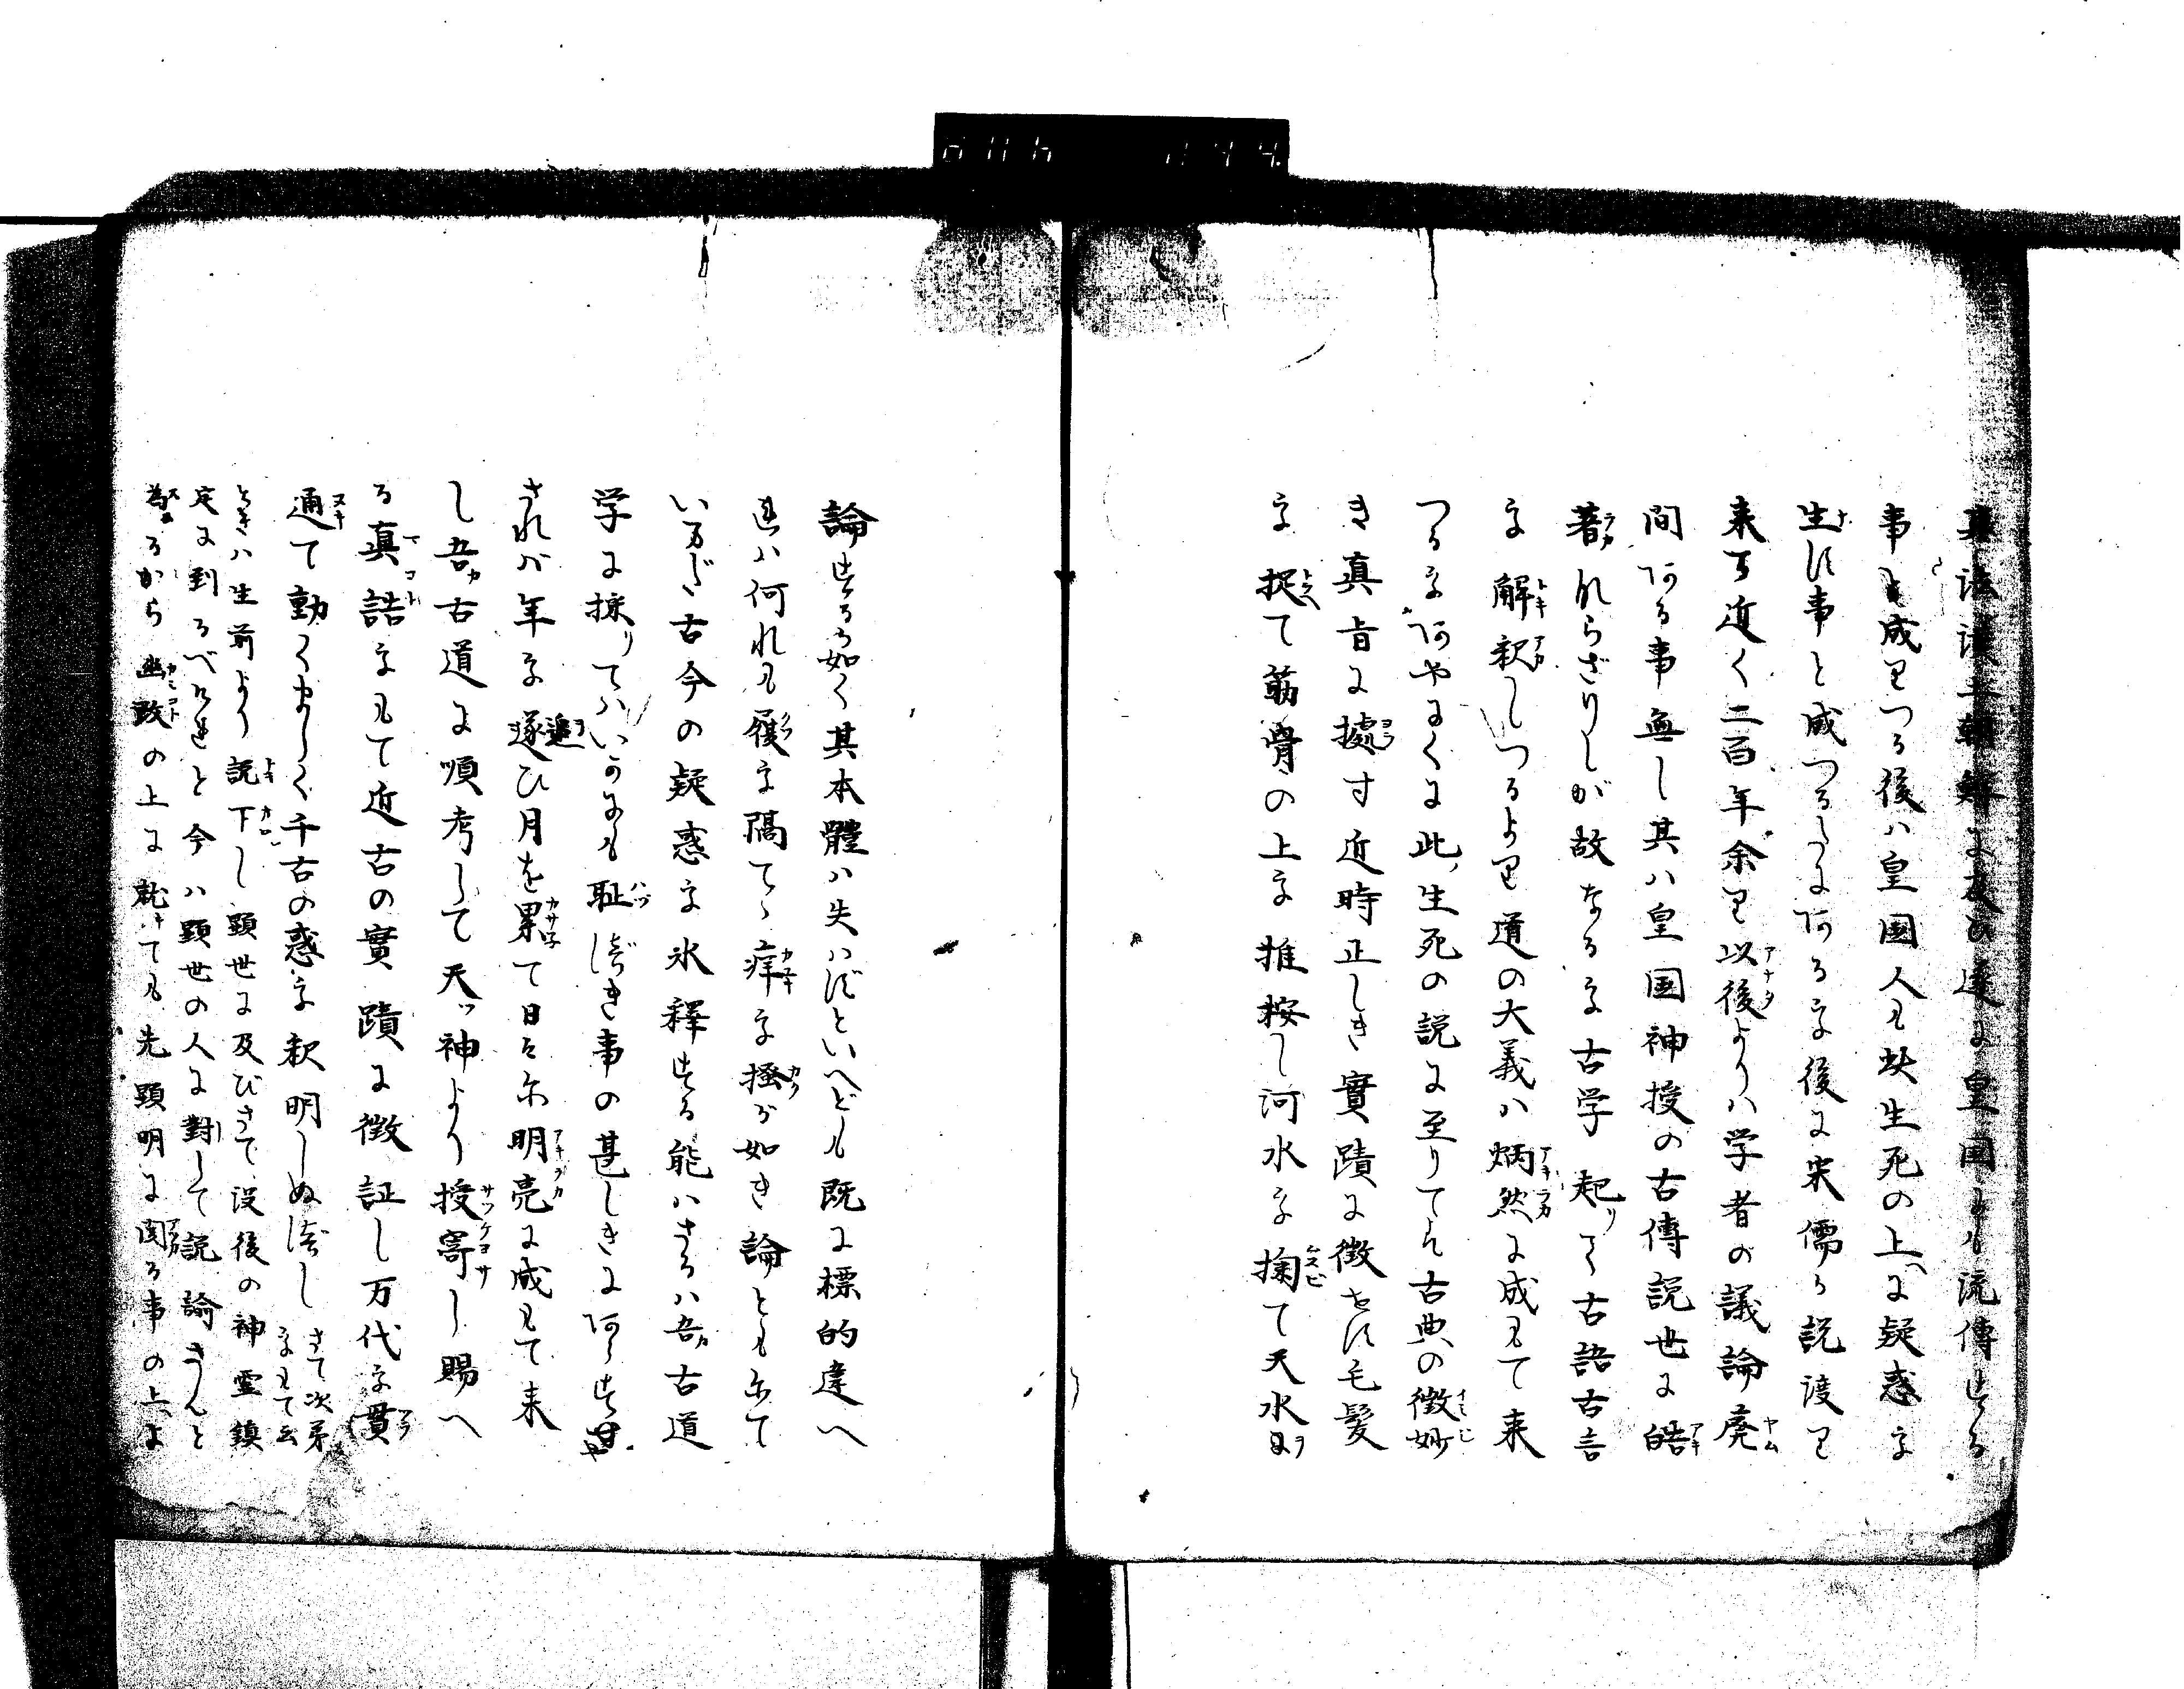 其法漢土朝鮮に及ひ遂に皇国にも流傳せる
事と成りつる後ハ皇国人も蚨生死の上に疑惑を
生す事と成つるにある を後に宋儒の説渡り
来て近く二百年余り以後よりハ学者の議論廃
間ある事無し其ハ皇国神授の古傳説世に皓
著れらざりしが故なるを古学起りて古語古言
を解釈しつるより道の大義ハ炳然に成もて来
つるを あやにくに此生死の説に至りてハ古典の徴妙
き真旨に據す近時正しき實蹟に徴せす毛髪
を捉て筋骨の上を推按し河水を掬て天水を
論せるる如く其本體ハ失ハずといへども既に標的違へ
連ハ何れも履を隔て痒を掻が如き論ともにて
いまだ古今の疑惑を氷釋せる能ハさるハ吾古道
学に採りてハいかにも耻づべき事の甚しきにあらすや
されバ年を逐ひ月を累て日々に明亮に成もて来
し吾古道に順考して天ッ神より授寄し賜へ
る真誥をもて近古の實蹟に徴証し万代を貫
通て動くましく千古の惑を釈明しぬべし さて次第
をもて云
ときハ生前より説下し顕世に及びさて没後の神霊鎮
定に到るべけれと今ハ顕世の人に對して説諭さんと
為るから幽政の上に就ても先顕明に関る事の上に